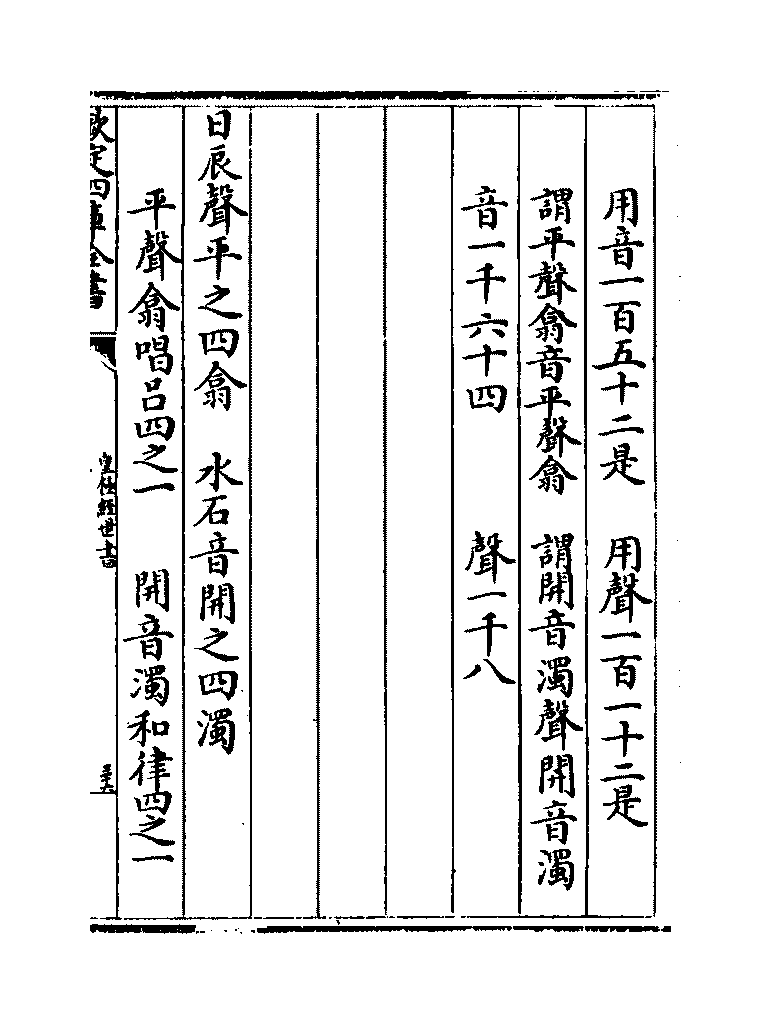 用音一百五十二是　用聲一百一十二是
謂平聲翕音平聲翕　謂開音濁聲開音濁
音一千六十四　聲一千八
日辰聲平之四翕　水石音開之四濁
平聲翕唱呂四之一　開音濁和律四之一
欽定四庫全書　皇極經世書